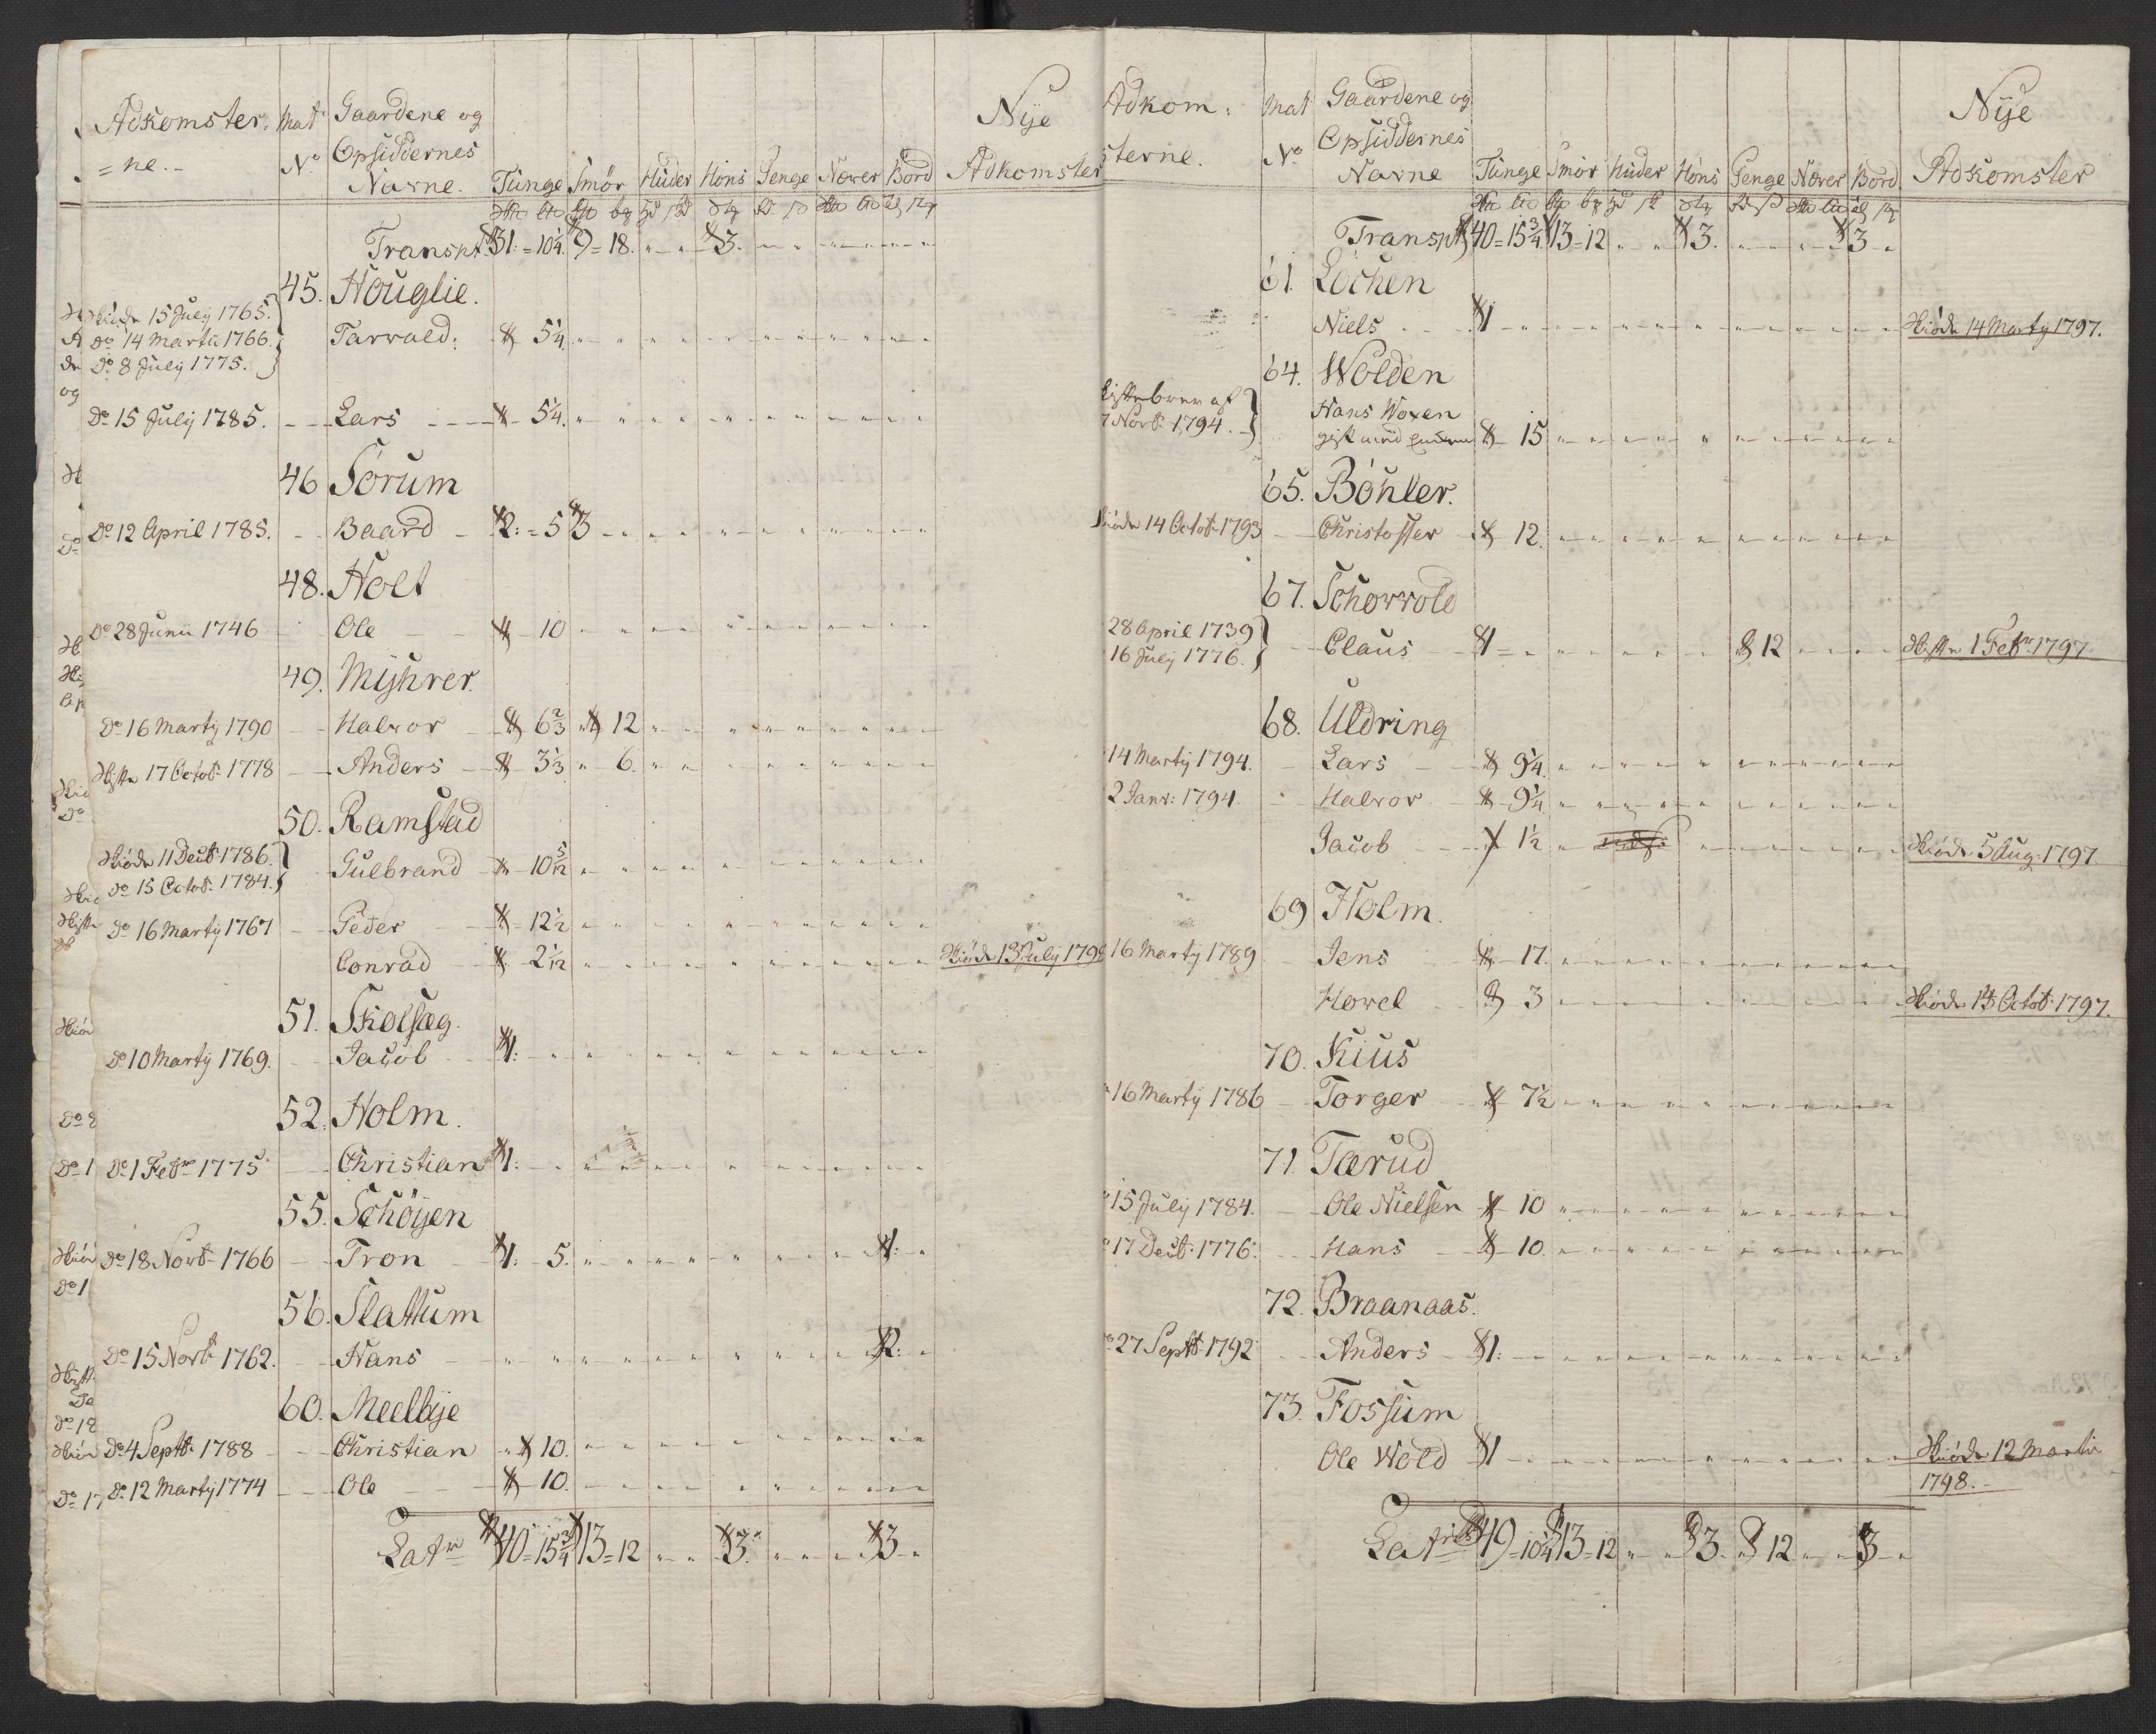 Adkomster= Mat Gaardene og Nÿe
=ne.- No Opsiddernes
Navne. Tunge Smör Huder Höns Penge Næver Bord Adkomster
Transpt 31:=10¼. 9=18. " " 3. " " " " " "
45. Houglie.
Skiöde 15 Julÿ 1765.
Do 14 Martii 1766. Tarvald: 5¼
Do 8 Julÿ 1775.
Do 15 Julÿ 1785. Lars 5¼.
46 Sörum
Do 12 April 1785. Baard 2:=5 3
48. Holt
Do 28 Junii 1746 Ole 10
49. Mÿhrer.
Do 16 Martÿ 1790 Halvor 6⅔ 12
17 Octob: 1778 Anders 3⅓ " 6.
50. Ramstad
Skiöde 11 Decb: 1786.
Do 15 Octob: 1784. Gulbrand 10 5/12
Do 16 Martÿ 1767 Peder 12½
Conrad 2 1/12 Skiöde 13 Julÿ 179
51. Skolsæg.
Do 10 Martÿ 1769. Jacob 1:
52. Holm.
Do 1 Febr 1775 Christian 1:
55. Schöÿen
Do 18 Novb 1766 Tron 1: 5. 1:
56. Slattum
Do 15 Novb 1762. Hans 2:
60. Meelbÿe
Do 4 Septb: 1788 Christian 10.
Do 12 Martÿ 1774 Ole 10.
Latr 40=15¾ 13=12 " " 3. " " " 3 "
Adkom= Mat Gaardene og Nÿe
sterne. No Opsiddernes
Navne Tunge Smör Huder Höns Penge Næver Bord Adkomster
Transpt 40=15¾ 13=12 " " 3. " " " 3 "
61. Löchen
Niels 1 Skiöde 14 Martÿ 1797.
64. Wolden
af Hans Woxen
7 Novb: 1794. gift med 15
65. Böhler.
14 Octob 1793 Christoffer 12.
67. Schovvold
28 April 1739
16 Julÿ 1776. Claus 1= 12 1 Febr 1797
68. Uldring
14 Martÿ 1794. Lars 9¼
2 Janv: 1794 Halvor 9¼
Jacob 1½ Skiöde 5 Aug: 1797
69 Holm.
16 Martÿ 1789 Jens 17.
Hovel 3 Skiöde 14 Octob: 1797.
70. Kius
16 Martÿ 1786 Torger 7½
71. Tærud
15 Julÿ 1784. Ole Nielsen 10
17 Decb: 1776. Hans 10.
72. Braanaas.
27 Septb 1792 Anders 1:
73. Fossum
Ole Wold 1 Skiöde 12 Martii
1798.-
Latr 49=10¼ 13=12 " " 3. 12 " " 3 "